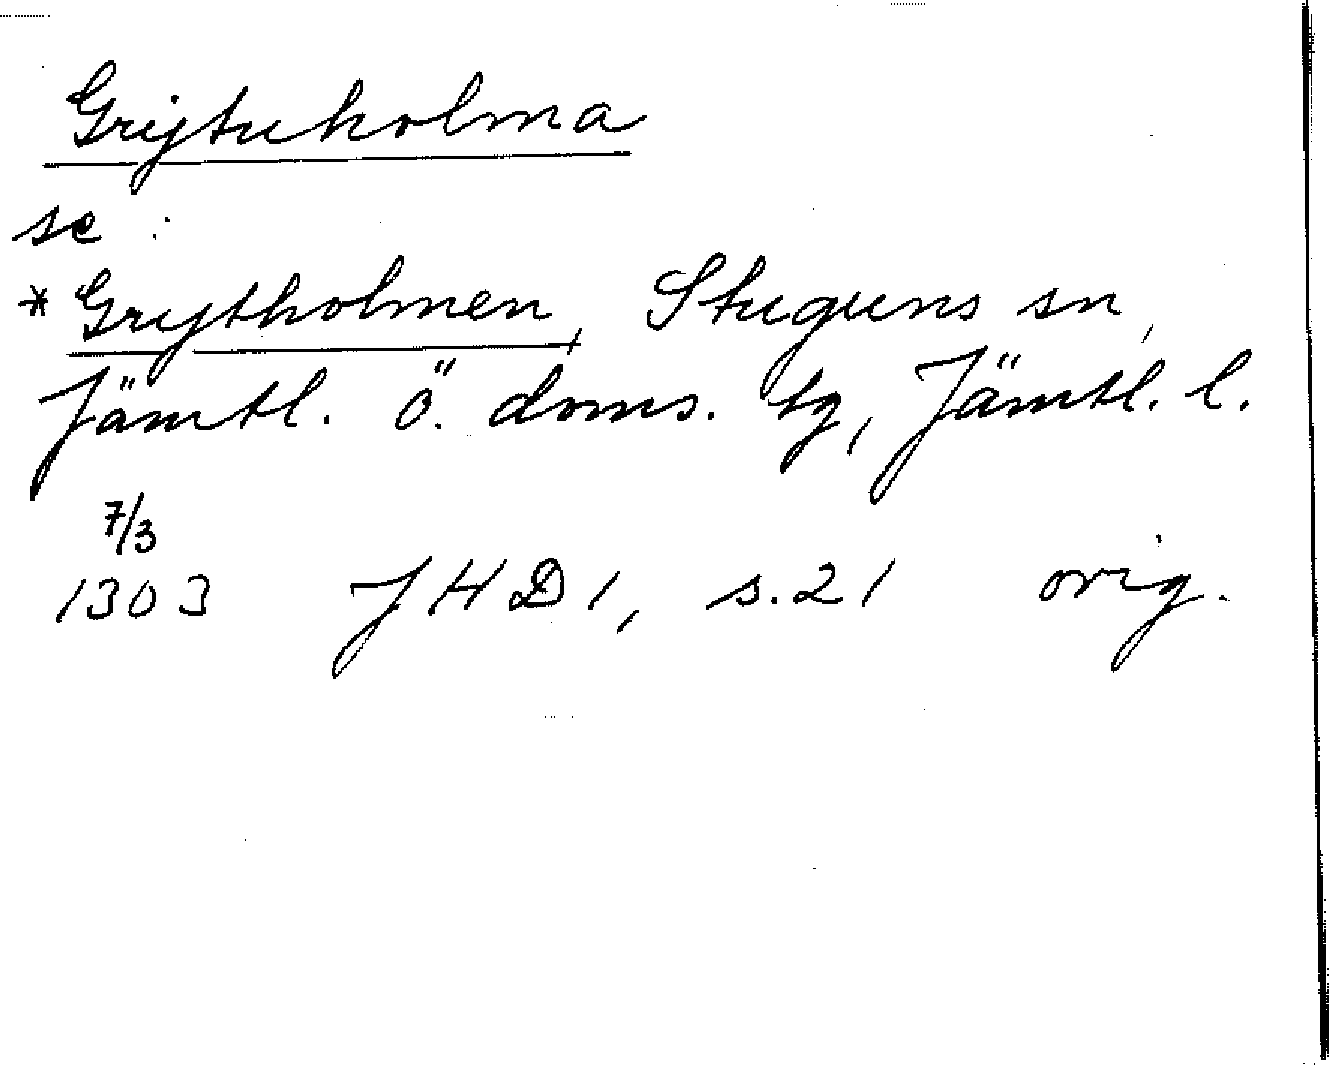 Grijtuholma
se :
*Grytholmen, Stuguns sn,
Jämtl. ö. doms. tg, Jämtl. l.
7/3
1303 JHD 1, s. 21 orig.